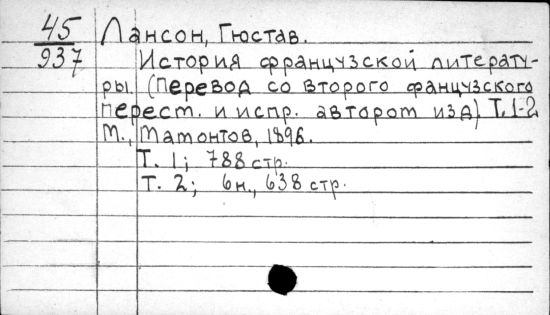 45 Лансон, Гюстав.
937 История французской литерату-
ры. (Перевод со второго фанцузского
перест. и испр. автором изд) Т. 1-2
М., Мамонтов, 1896.
Т. 1; 788 стр.
Т. 2; 6н., 638 стр.